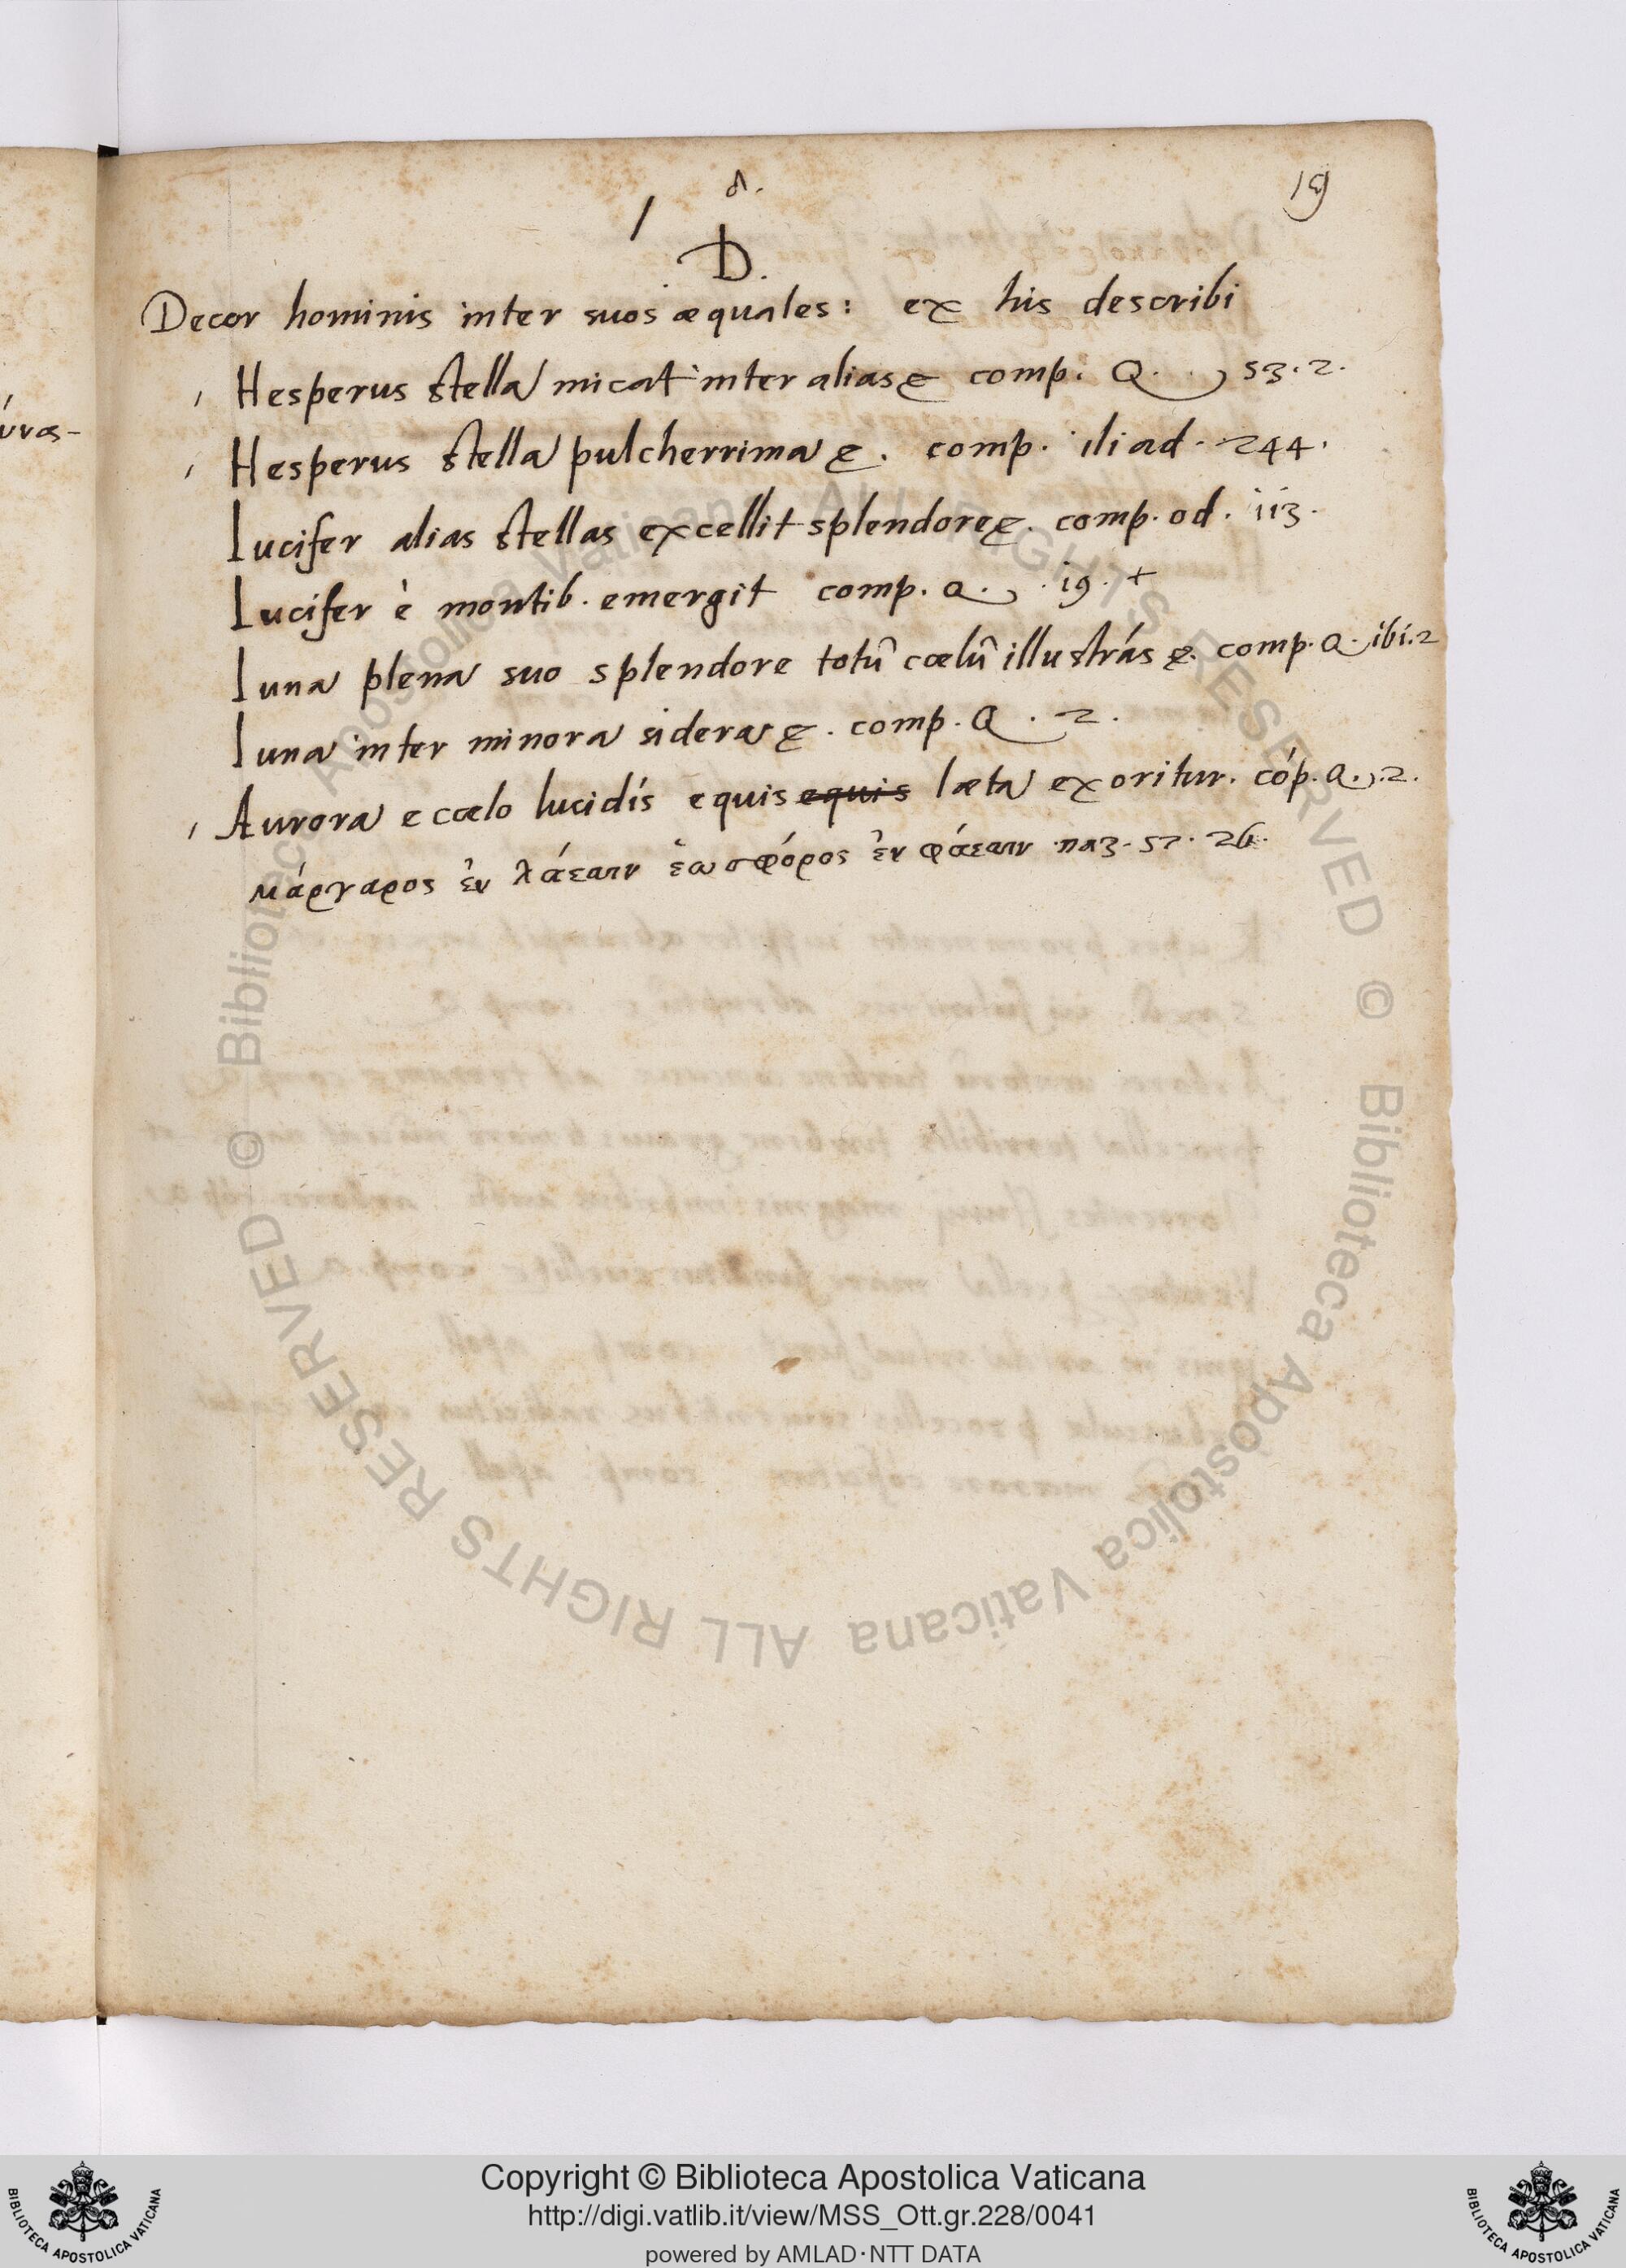 δ.
19
D.
Decor hominis inter suos æquales: ex his describi
Hesperus stella micat inter alias comp. Q. 53.2.
Hesperus stella pulcherrima comp. iliad. 244.
Lucifer alias stellas excellit splendore comp. od. 113.
Lucifer è montib. emergit comp. a. 19. +
Luna plena suo splendore totũ cœlũ illustrás comp. Q. ibi. 2
Luna inter minora sidera comp. Q. 2.
Aurora e cœlo lucidis equis equis læta exoritur. cóp. a. 2.
μάργαρος ἐν λάεσιν ἑωσφόρος ἐν φάεσιν ναζ. 57. 26.
Copyright © Biblioteca Apostolica Vaticana
http://digi.vatlib.it/view/MSS_Ott.gr.228/0041
powered by AMLAD·NTT DATA
BIBLIOTECA APOSTOLICA VATICANA
BIBLIOTECA APOSTOLICA VATICANA
© Biblioteca Apostolica Vaticana ALL RIGHTS RESERVED © Biblioteca Apostolica Vaticana ALL RIGHTS RESERVED